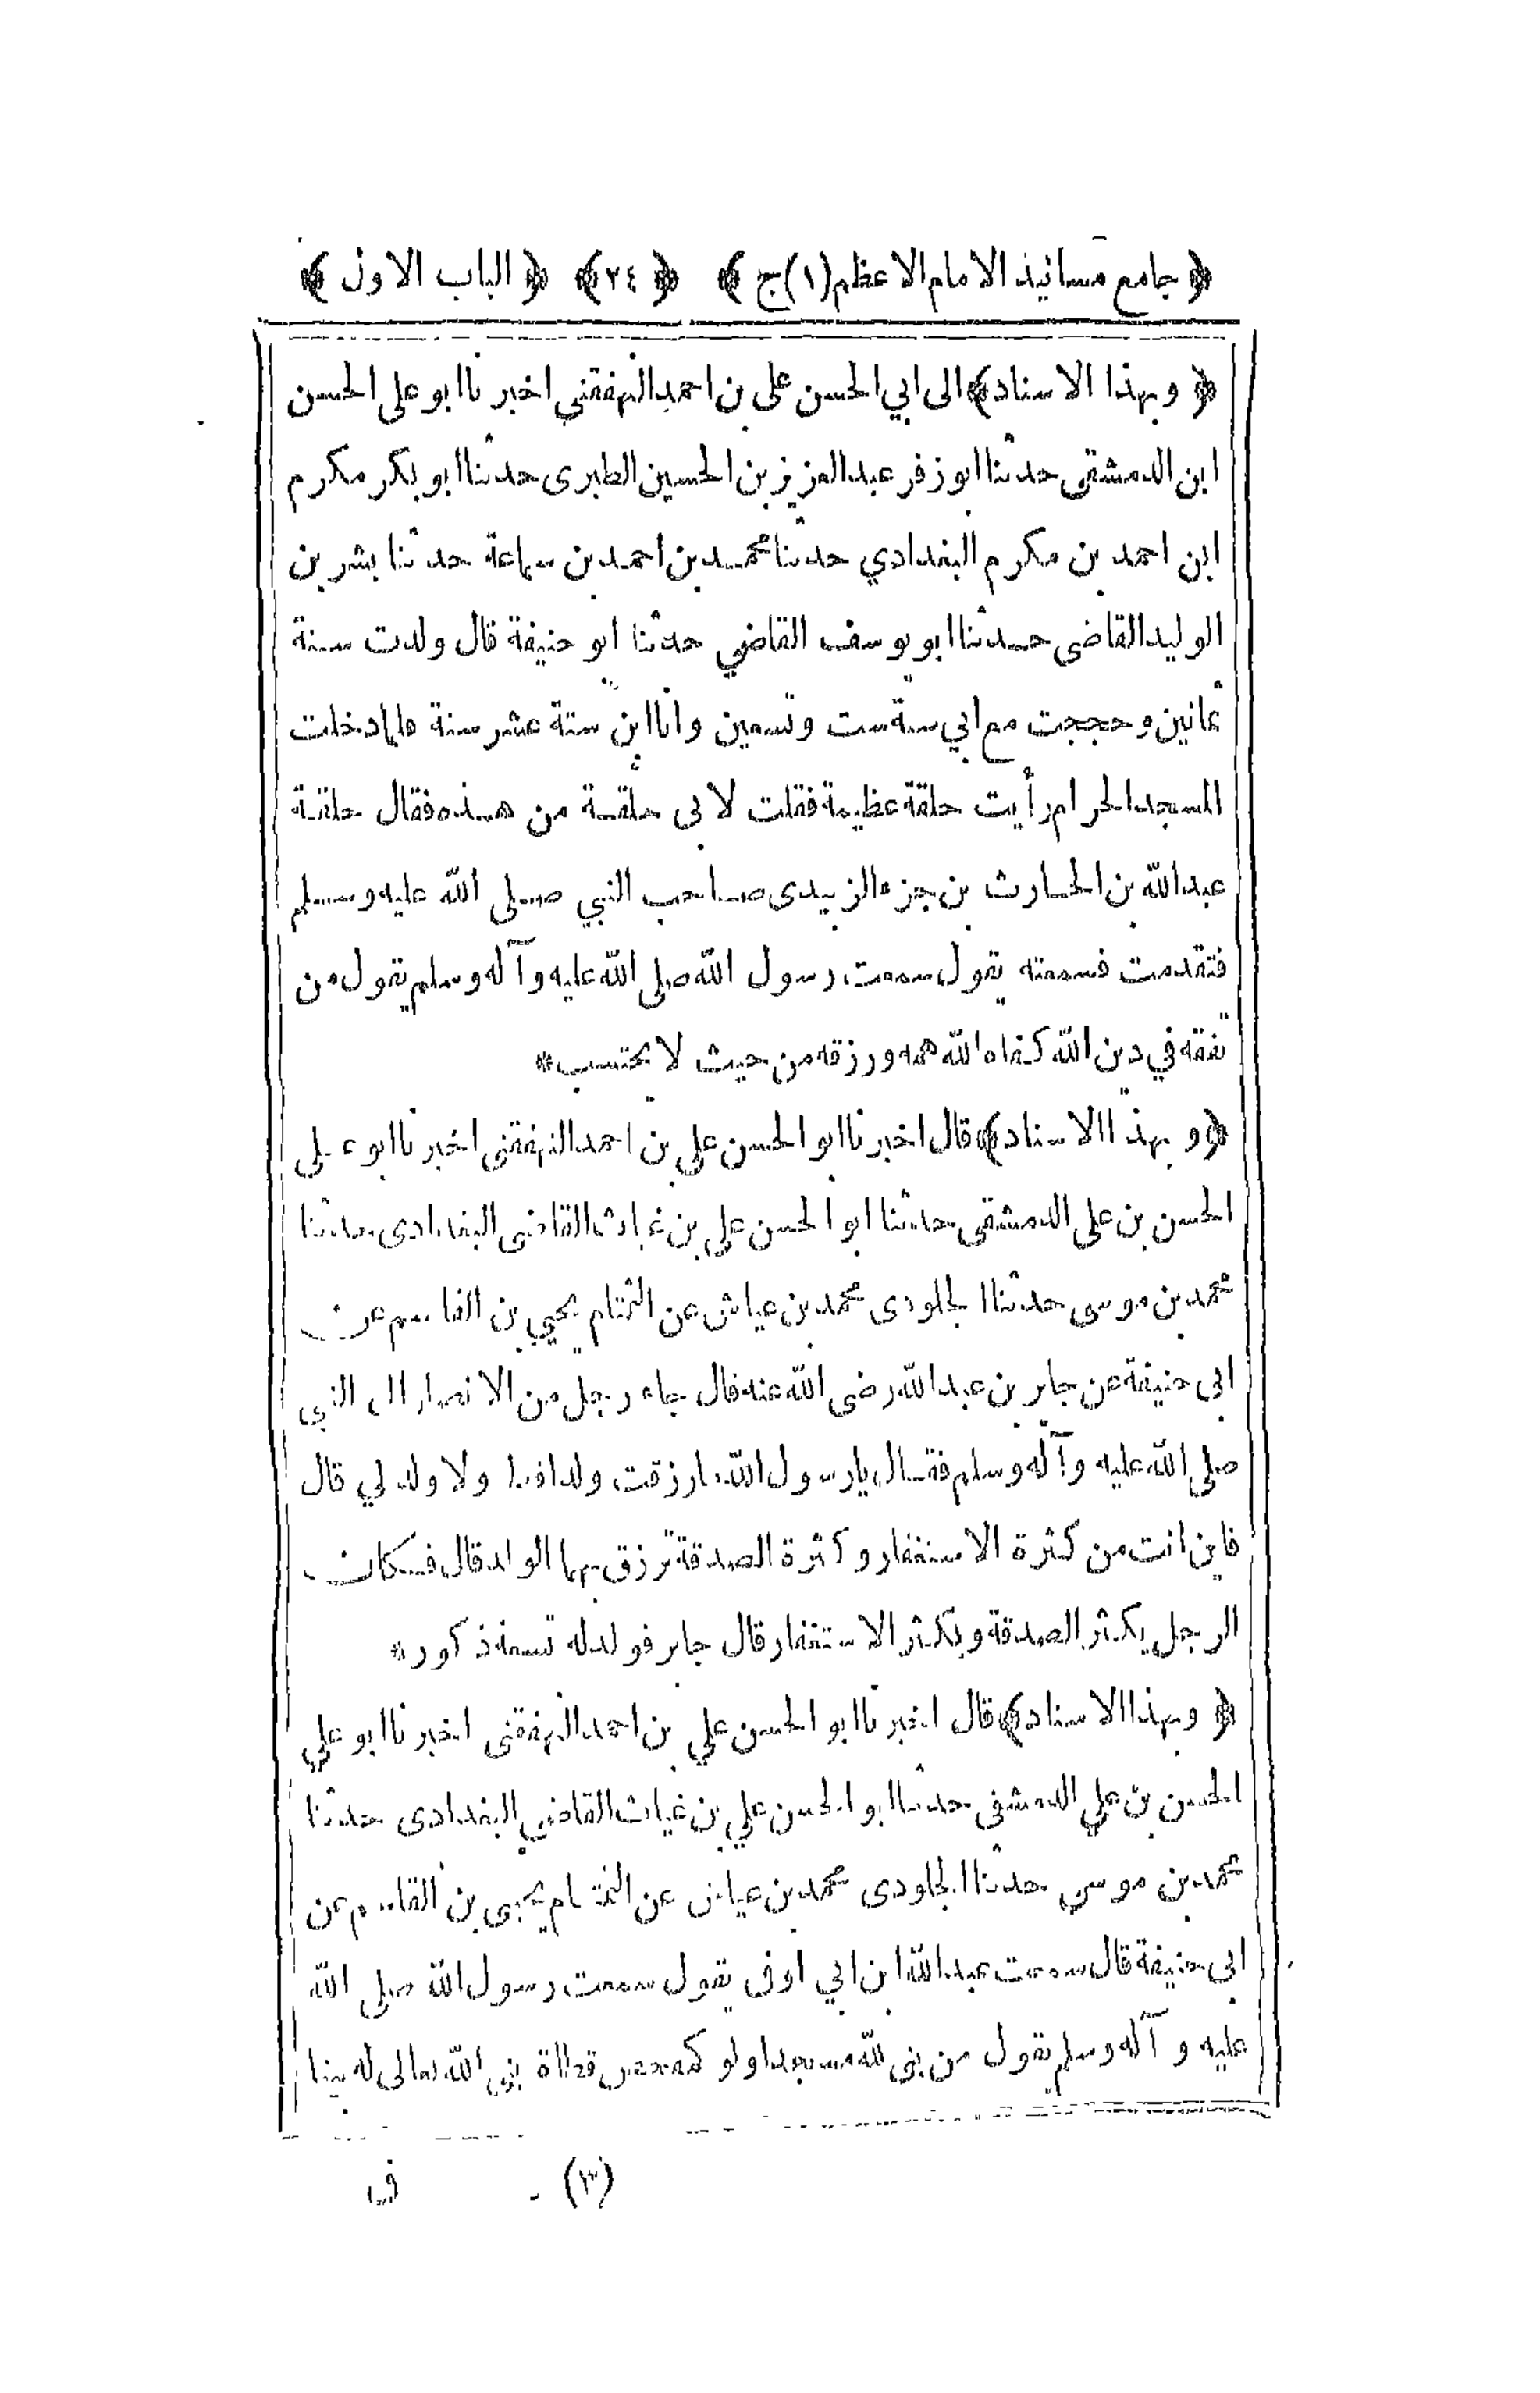 ﴿ جامع مسانيد الامام الاعظم (١) ج ﴾ ﴿ ٢٤ ﴾ ﴿ الباب الاول ﴾
﴿ وبهذا الاسناد ﴾ الى ابي الحسن على بن احمد النهفقني اخبرنا ابو على الحسن
ابن الدمشقى حدثنا ابو زفر عبدالعزيز بن الحسين الطبرى حدثنا ابو بكر مكرم
ابن احمد بن مكرم البغدادي حدثنا محمد بن احمد بن سماعة حدثنا بشر بن
الوليد القاضى حدثنا ابو يوسف القاضي حدثنا ابو حنيفة قال ولدت سنة
ثمانين وحججت مع ابي سنة ست وتسعين وانا ابن ستة عشر سنة فلما دخلت
المسجد الحرام رأيت حلقة عظيمة فقلت لابى حلقة من هذه فقال حلقة
عبدالله بن الحارث بن جزء الزبيدى صاحب النبي صلى الله عليه وسلم
فتقدمت فسمعته يقول سمعت رسول الله صلى الله عليه وآله وسلم يقول من
تفقه في دين الله كفاه الله همه ورزقه من حيث لا يحتسب *
﴿ وبهذا الاسناد ﴾ قال اخبرنا ابو الحسن علي بن احمد النهفقنى اخبرنا ابو على
الحسن بن على الدمشقى حدثنا ابو الحسن علي بن غياث القاضي البغدادى حدثنا
محمد بن موسى حدثنا الجلودى محمد بن عياش عن التمتام يحيي بن القاسم عن
ابى حنيفة عن جابر بن عبدالله رضى الله عنه قال جاء رجل من الانصار الى النبي
صلى الله عليه وآله وسلم فقال يا رسول الله ما رزقت ولدا قط ولا ولد لي قال
فاين انت من كثرة الاستغفار وكثرة الصدقة ترزق بهما الولد قال فكان
الرجل يكثر الصدقة ويكثر الاستغفار قال جابر فولد له تسعة ذكور *
﴿ وبهذا الاسناد ﴾ قال اخبرنا ابو الحسن علي بن احمد النهفقنى اخبرنا ابو علي
الحسن بن علي الدمشقى حدثنا ابو الحسن علي بن غياث القاضي البغدادى حدثنا
محمد بن موسى حدثنا الجلودى محمد بن عياش عن التمتام يحيى بن القاسم عن
ابى حنيفة قال سمعت عبدالله ابن ابي اوفى يقول سمعت رسول الله صلى الله
عليه وآله وسلم يقول من بنى لله مسجدا ولو كمفحص قطاة بنى الله تعالى له بيتا
(٣) في